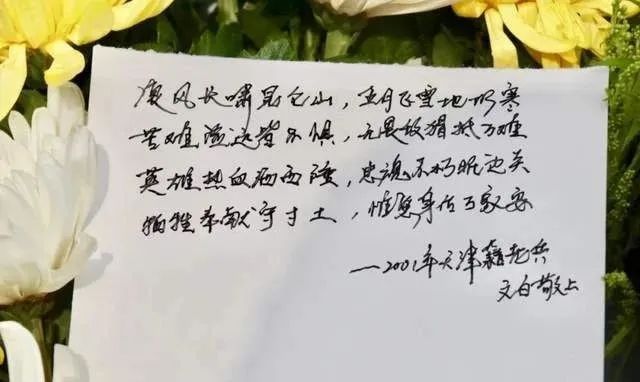 风长啸昆仑山，五月飞雪地仍寒
苦难 皆不惧，无畏敌猖抵万难
英雄热血洒西陲，忠魂不朽眠边关
牺牲奉献守寸土，惟愿身佑万家安
——2001年天津籍老兵
文白敬上